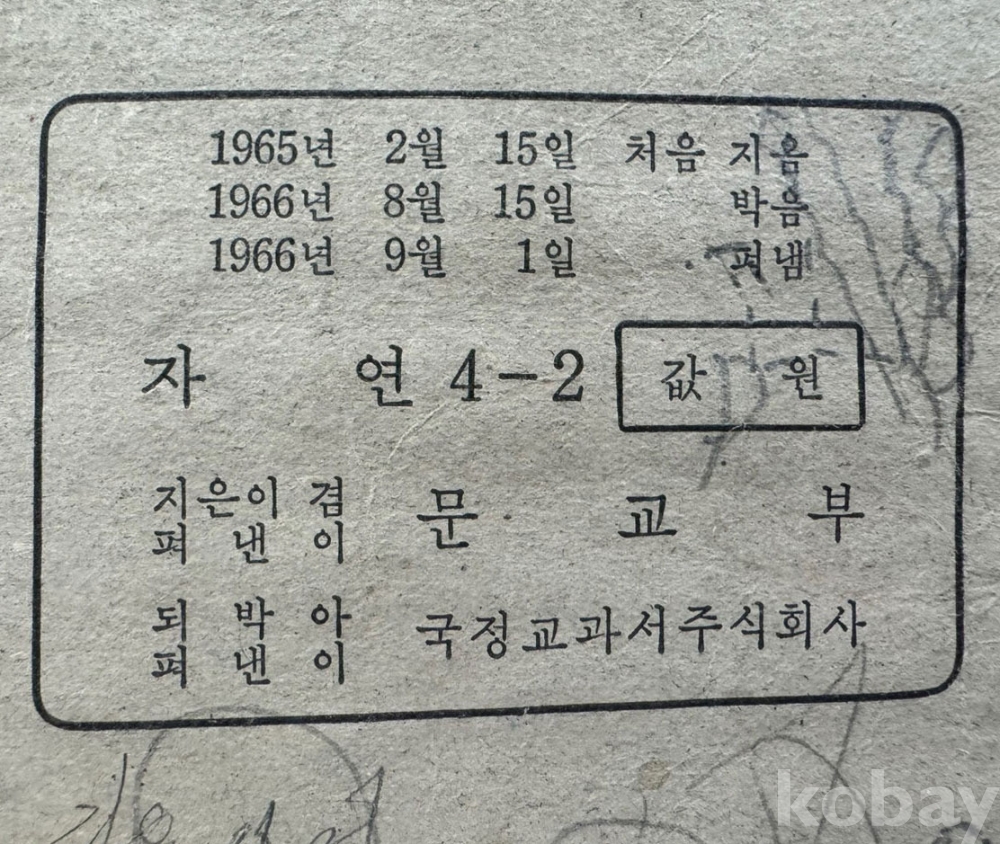 1965년 2월 15일 처음 지음
1966년 8월 15일 박음
1966년 9월 1일 펴냄
자 연 4-2 값 원
지은이 겸
펴 낸 이
문 교 부
되 박 아
펴 낸 이
국정교과서주식회사
kobay